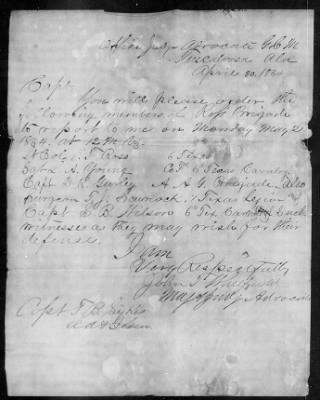 Office Judge Advocate G.C.M.
Tuscaloosa Ala
April 30, 1864
Capt
You will please order the
following members of Ross Brigade
to report to me on Monday May 2
1864 at 12 M.
Lt Col Ross 6 Texas
Young Co F 6 Texas Cavalry
Capt D. R. Gurley A. A. G. Brigade, also
Surgeon Scurlock, 1 Texas Legion
Capt E. B. Nelson 6 Tex Cav & such
witnesses as they may wish for their
defense.
I am
Very Respectfully
John J.
Maj & Judge Advocate
Capt F. B. Sykes